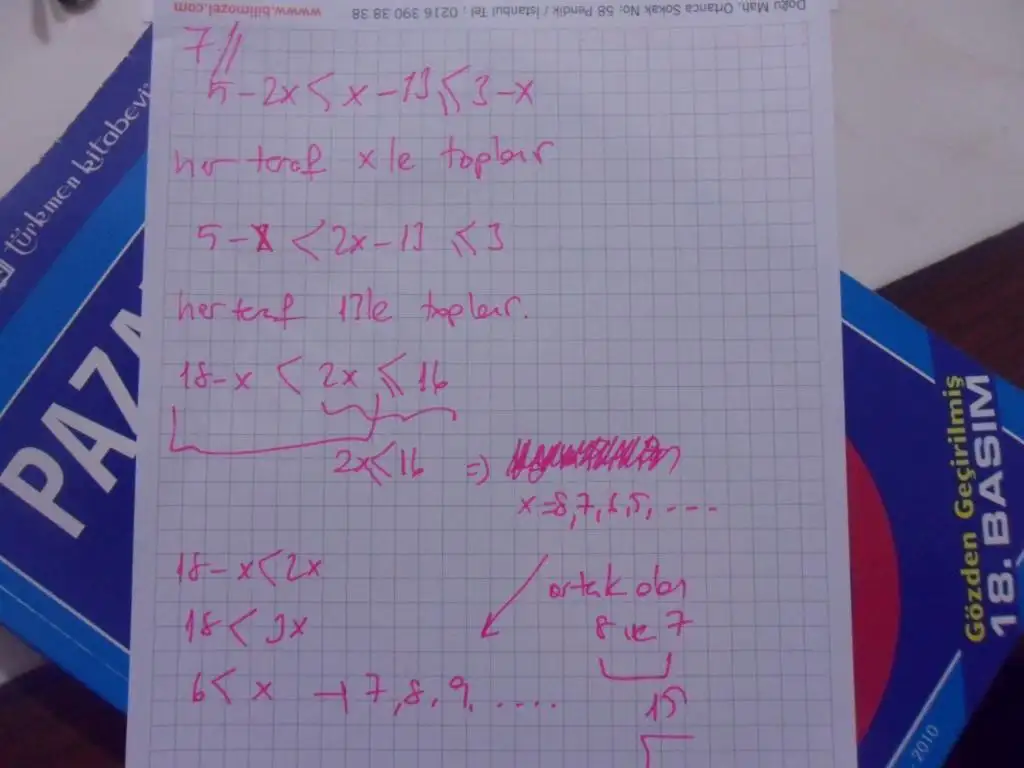 Doğu Mah. Ortanca Sokak No: 58 Pendik / İstanbul Tel : 0216 390 38 38 www.bilimozel.com
7//
5-2x<x-13≤3-x
her taraf x le toplanır
5-x<2x-13≤3
her taraf 13 le toplanır.
18-x<2x≤16
2x≤16 =>
x=8,7,6,5,....
18-x<2x
18<3x
6<x → 7,8,9,....
ortak olan
8 ve 7
15
türkmen kitabevi
PAZA
Gözden Geçirilmiş
18. BASIM
2010